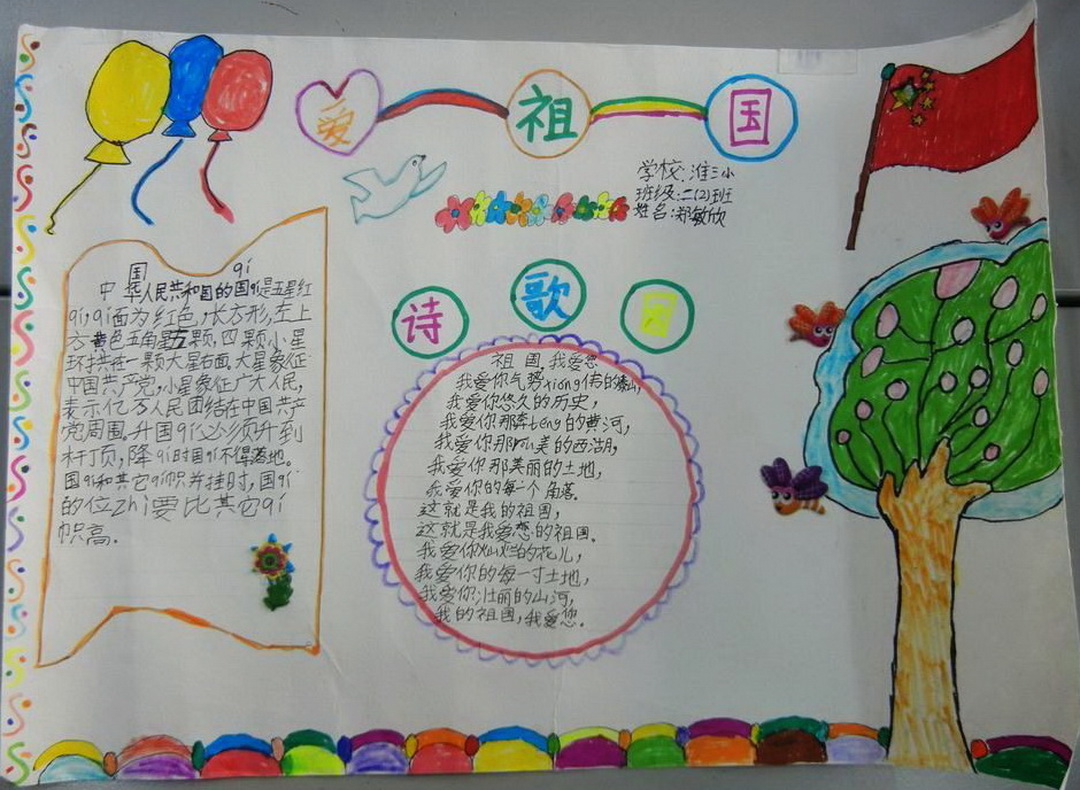 爱祖国
学校:淮三小
班级:二(2)班
姓名:郑敏欣
国 qi
中华人民共和国的国qi是五星红
qi,qi面为红色,长方形,左上
方黄色五角星五颗,四颗小星
环拱在一颗大星右面。大星象征
中国共产党,小星象征广大人民,
表示亿万人民团结在中国共产
党周围。升国qi必须升到
杆顶,降qi时国qi不得落地。
国qi和其它qi帜并挂时,国qi
的位zhi要比其它qi
帜高。
诗歌
祖国,我爱您
我爱你气势xiong伟的泰山,
我爱你悠久的历史,
我爱你那奔teng的黄河,
我爱你那阿美的西湖,
我爱你那美丽的土地,
我爱你的每一个角落。
这就是我的祖国,
这就是我爱您的祖国。
我爱你灿烂的花儿,
我爱你的每一寸土地,
我爱你壮丽的山河,
我的祖国,我爱您。